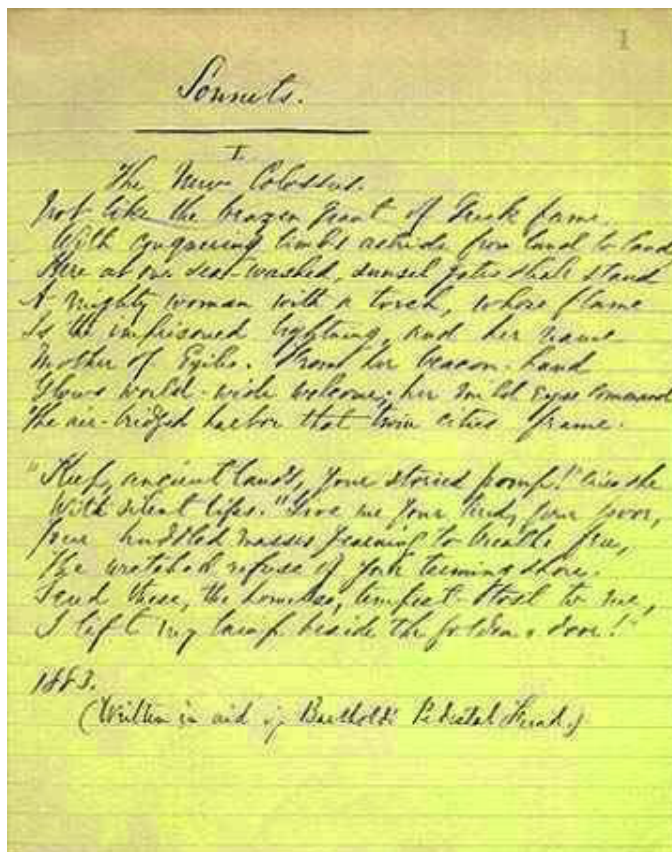 1
Sonnets.
I.
The New Colossus.
Not like the brazen giant of Greek fame,
With conquering limbs astride from land to land;
Here at our sea-washed, sunset gates shall stand
A mighty woman with a torch, whose flame
Is the imprisoned lightning, and her name
Mother of Exiles. From her beacon-hand
Glows world-wide welcome; her mild eyes command
The air-bridged harbor that twin cities frame.
"Keep, ancient lands, your storied pomp!" cries she
With silent lips. "Give me your tired, your poor,
Your huddled masses yearning to breathe free,
The wretched refuse of your teeming shore.
Send these, the homeless, tempest-tost to me,
I lift my lamp beside the golden door!"
1883.
(Written in aid of Bartholdi Pedestal Fund.)